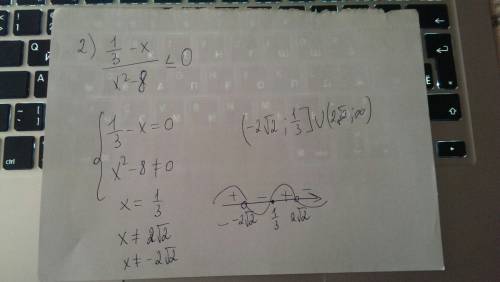 2) (1/3 - x)/(x² - 8) ≤ 0
{ 1/3 - x = 0
x² - 8 ≠ 0
x = 1/3
x ≠ 2√2
x ≠ -2√2
(-2√2 ; 1/3] ∪ (2√2 ; ∞)
+ - + -
-2√2 1/3 2√2